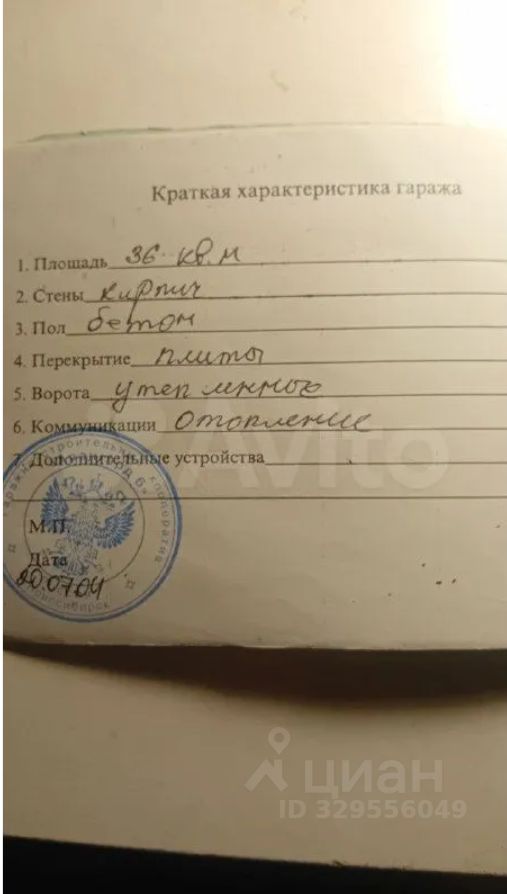 Краткая характеристика гаража
1. Площадь 36 кв.м
2. Стены кирпич
3. Пол бетон
4. Перекрытие плиты
5. Ворота утепленные
6. Коммуникации отопление
7. Дополнительные устройства
М.П.
Дата
20.07.04
Новосибирск
Avito
циан
ID 329556049